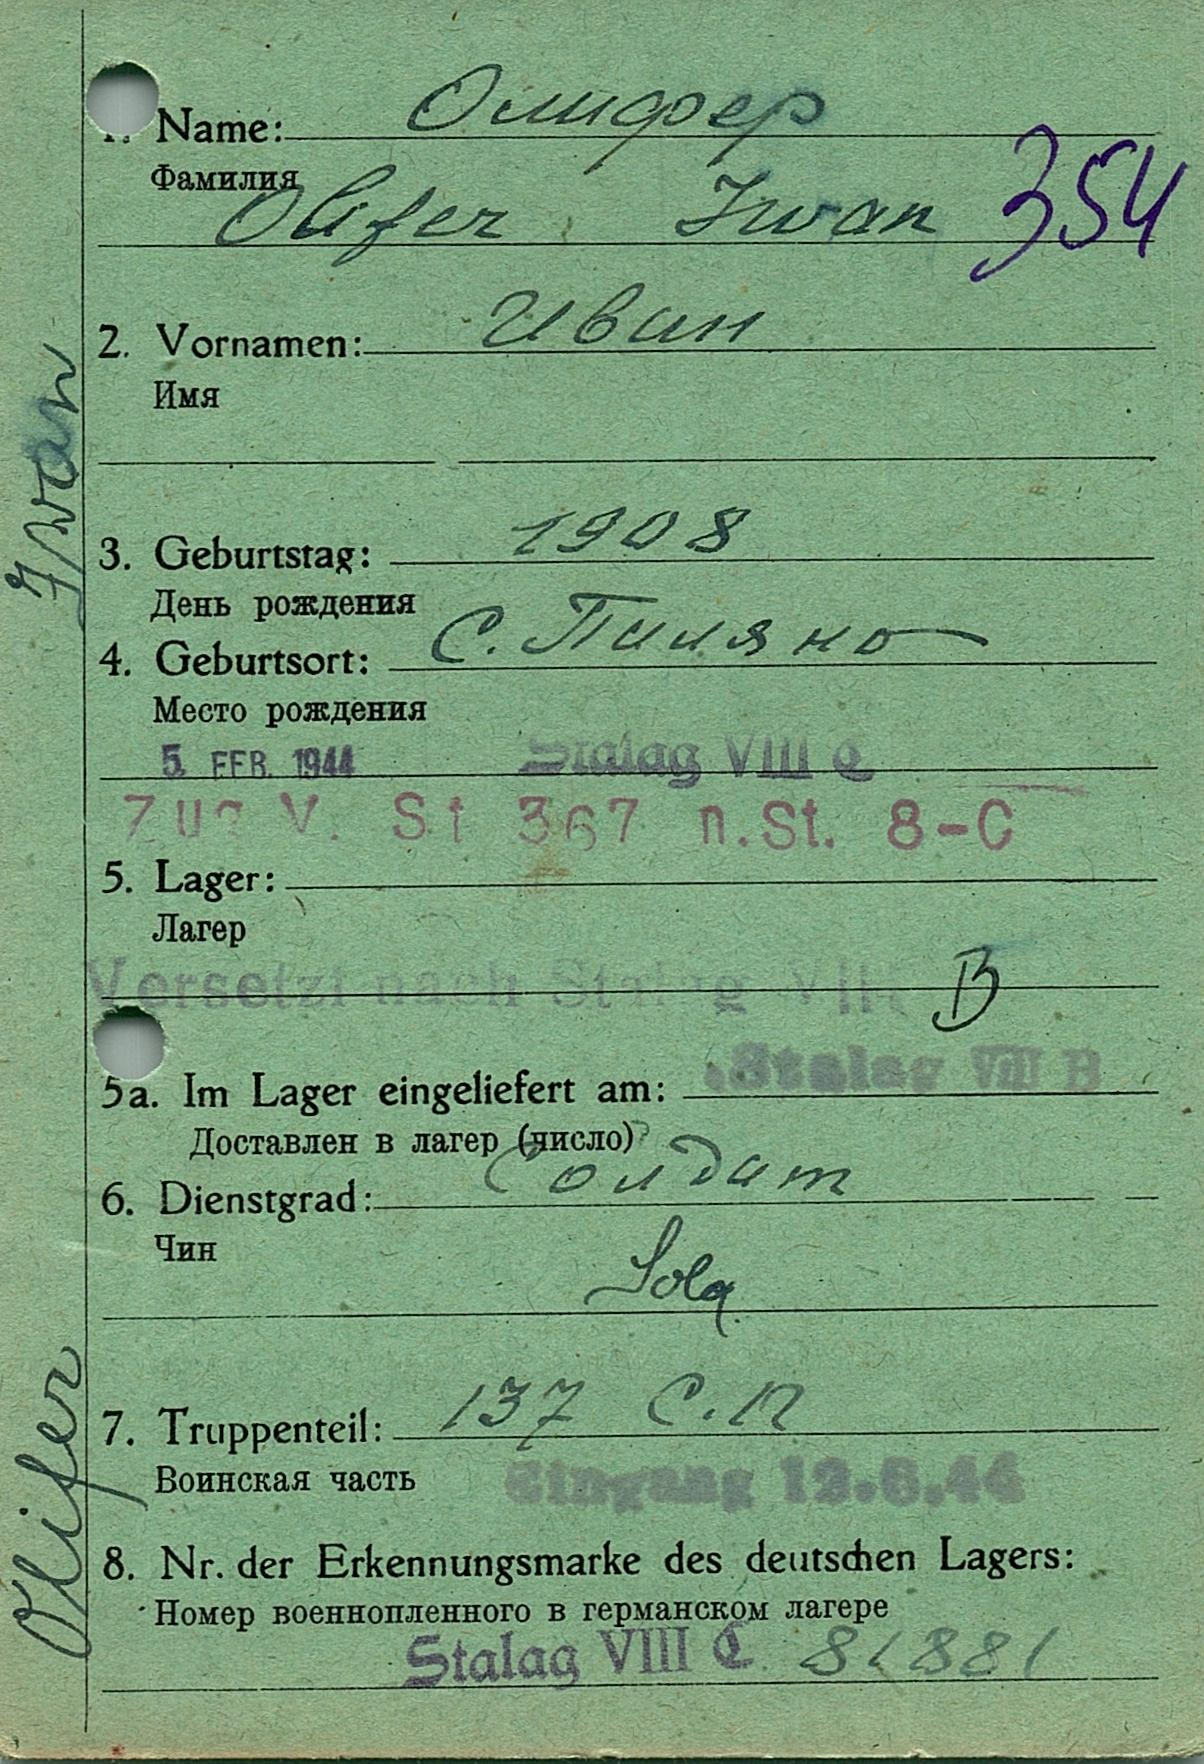 1. Name: Олифер
Фамилия
Olifer Iwan 354
2. Vornamen: Иван
Имя
3. Geburtstag: 1908
День рождения
4. Geburtsort: с. Пиляно
Место рождения
5. FEB. 1944 Stalag VIII C
Zug V. St 367 n. St. 8-C
5. Lager:
Лагер
Versetzt nach Stalag VIII B
Stalag VIII B
5a. Im Lager eingeliefert am:
Доставлен в лагер (число)
6. Dienstgrad: Солдат
Чин
Sold
7. Truppenteil: 137 С.П
Воинская часть
Eingang 12.6.44
8. Nr. der Erkennungsmarke des deutschen Lagers:
Номер военнопленного в германском лагере
Stalag VIII C 81881
Olifer Iwan